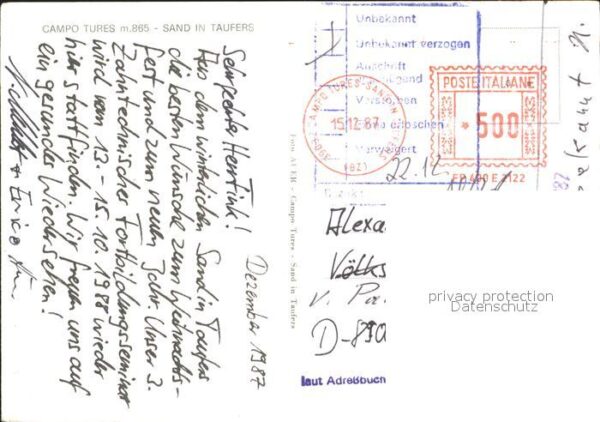 CAMPO TURES m.865 - SAND IN TAUFERS
Dezember 1987
Sehr geehrter Herr Fink!
Aus dem winterlichen Sand in Taufers
die besten Wünsche zum Weihnachts-
fest und zum neuen Jahr. Unser 3.
Zahntechnischer Fortbildungsseminar
wird vom 13. - 15. 10. 1988 wieder
hier stattfinden. Wir freuen uns auf
ein gesundes Wiedersehen!
Foto AUER - Campo Tures - Sand in Taufers
Unbekannt
Unbekannt verzogen
Anschrift
Verstorben
erloschen
Verweigert
CAMPO TURES-SAND IN
15.12.87
(BZ)
POSTE ITALIANE
500
22.12.
Alexa
Völks
v. Pa
D-890
laut Adreßbuch
privacy protection
Datenschutz